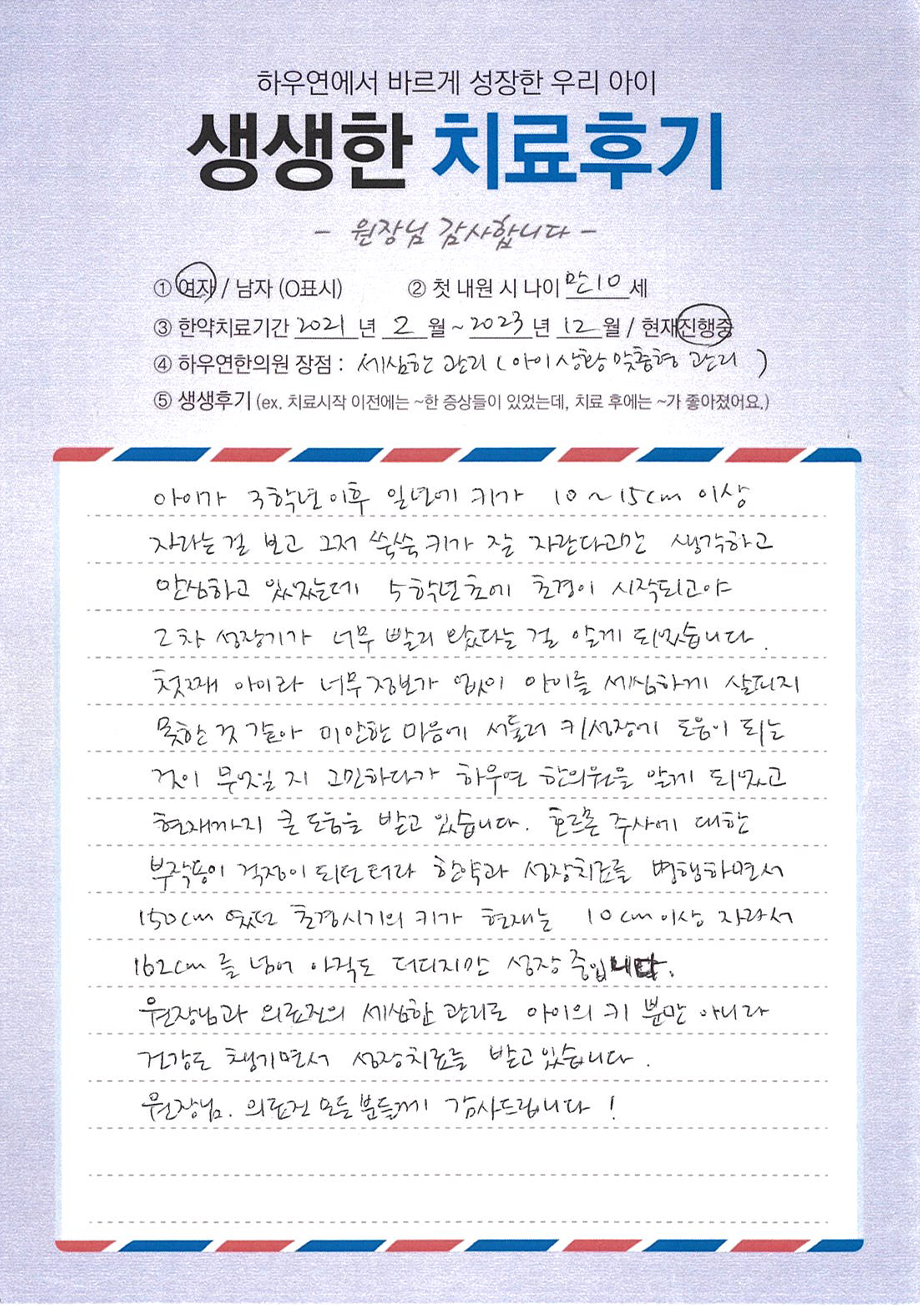 하우연에서 바르게 성장한 우리 아이
생생한 치료후기
- 원장님 감사합니다 -
① 여자 / 남자 (O표시) ② 첫 내원 시 나이 만10세
③ 한약치료기간 2021 년 2 월 ~ 2023 년 12 월 / 현재진행중
④ 하우연한의원 장점 : 세심한 관리 (아이상황 맞춤형 관리)
⑤ 생생후기 (ex. 치료시작 이전에는 ~한 증상들이 있었는데, 치료 후에는 ~가 좋아졌어요.)
아이가 3학년이후 일년에 키가 10~15cm 이상
자라는걸 보고 그저 쑥쑥 키가 잘 자란다고만 생각하고
안심하고 있었는데 5학년초에 초경이 시작되고야
2차 성장기가 너무 빨리 왔다는 걸 알게 되었습니다.
첫째 아이라 너무 정보가 없이 아이를 세심하게 살피지
못한 것 같아 미안한 마음에 서둘러 키성장에 도움이 되는
것이 무엇일 지 고민하다가 하우연 한의원을 알게 되었고
현재까지 큰 도움을 받고 있습니다. 호르몬 주사에 대한
부작용이 걱정이 되던터라 한약과 성장치료를 병행하면서
150cm 였던 초경시기의 키가 현재는 10cm이상 자라서
162cm 를 넘어 아직도 더디지만 성장 중입니다.
원장님과 의료진의 세심한 관리로 아이의 키 뿐만 아니라
건강도 챙기면서 성장치료를 받고있습니다.
원장님. 의료진 모든 분들께 감사드립니다!